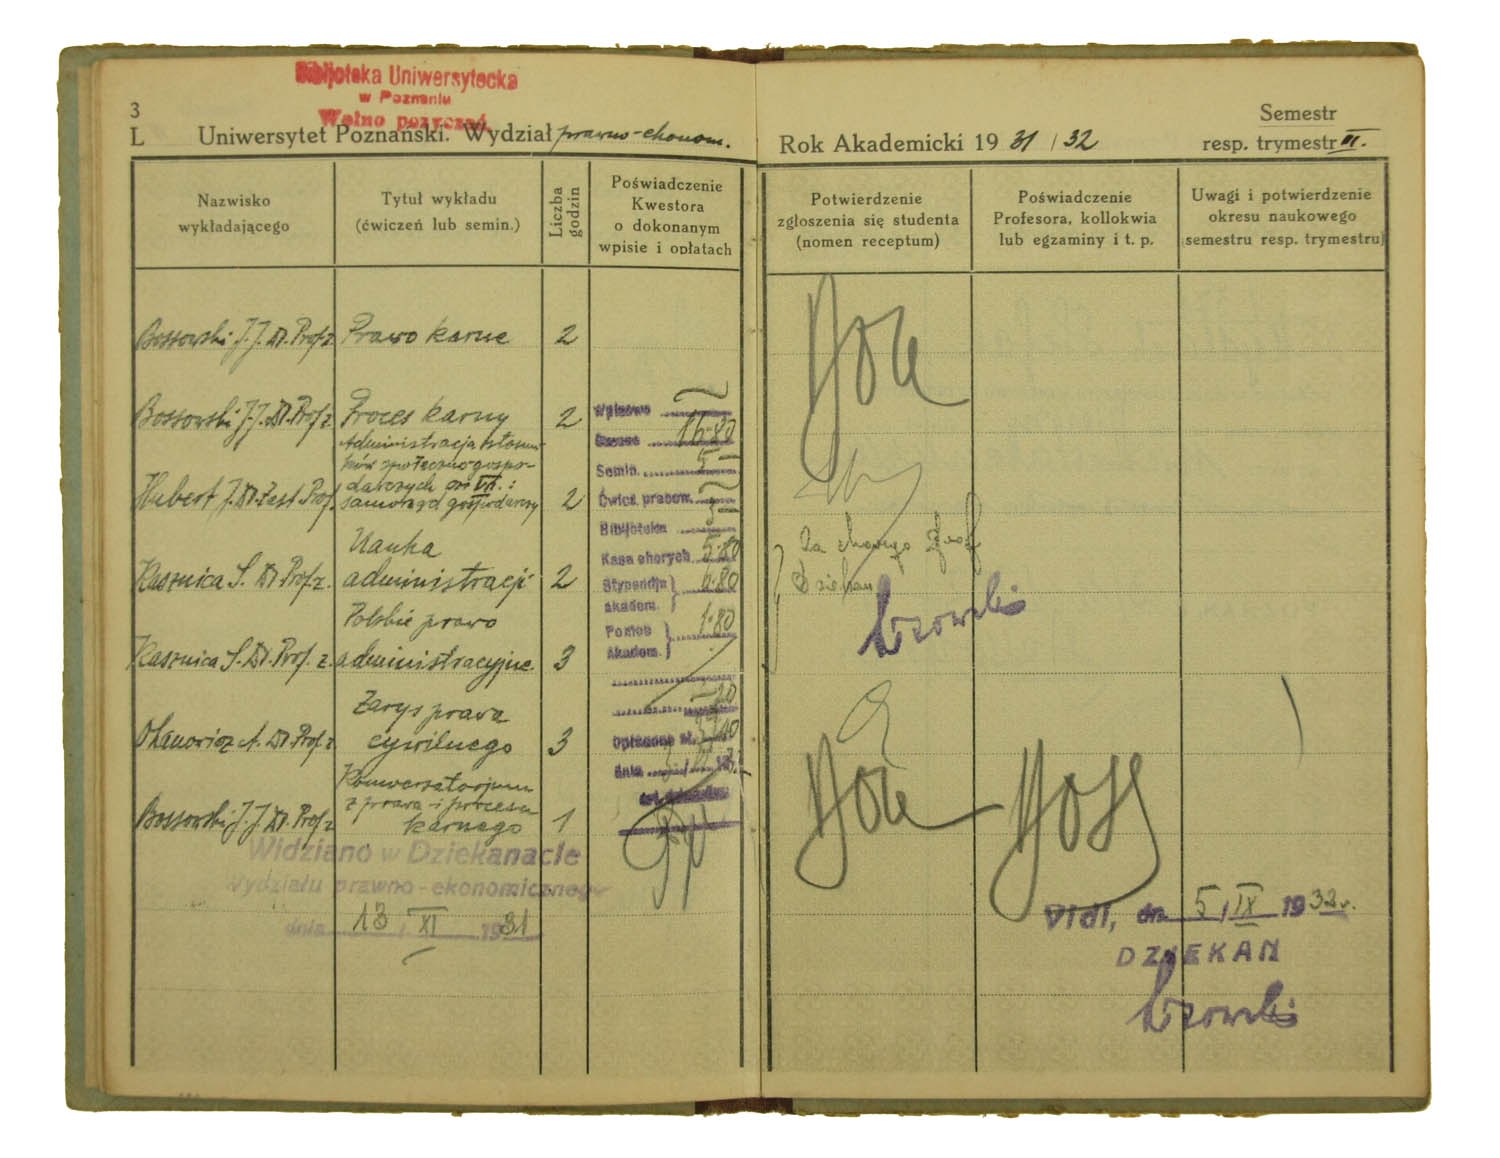 Bibljoteka Uniwersytecka
w Poznaniu
Wolno pożyczać
3
L Uniwersytet Poznański. Wydział prawno-ekonom.
Nazwisko wykładającego
Tytuł wykładu (ćwiczeń lub semin.)
Liczba godzin
Poświadczenie Kwestora o dokonanym wpisie i opłatach
Bossowski J. J. Dr. Prof. z. Prawo karne 2
Bossowski J. J. Dr. Prof. z. Proces karny 2
Administracja stosun-
ków społeczno-gospo-
darczych
Hubert J. Dr. Zast. Prof. samorząd gospodarczy 2
Nauka
Kasznica S. Dr. Prof. z. administracji 2
Polskie prawo
Kasznica S. Dr. Prof. z. administracyjne 3
Zarys prawa
Ohanowicz A. Dr. Prof. z. cywilnego 3
Konwersatorjum
z prawa i procesu
Bossowski J. J. Dr. Prof. z. karnego 1
Wpisowe
Czesne 16·80
Semin. 5
Ćwicz. pracow.
Bibljoteka
Kasa chorych 5·80
Stypendja akadem. 6·80
Pomoc Akadem. 1·80
Opłacono zł.
dnia
Widziano w Dziekanacie
Wydziału prawno-ekonomicznego
dnia 13 / XI 1931
Rok Akademicki 19 31 / 32
Semestr
resp. trymestr III.
Potwierdzenie zgłoszenia się studenta (nomen receptum)
Poświadczenie Profesora, kollokwia lub egzaminy i t. p.
Uwagi i potwierdzenie okresu naukowego semestru resp. trymestru
Za chorego prof.
Dziekan
Vidi, dn. 5 / IX 1932 r.
DZIEKAN